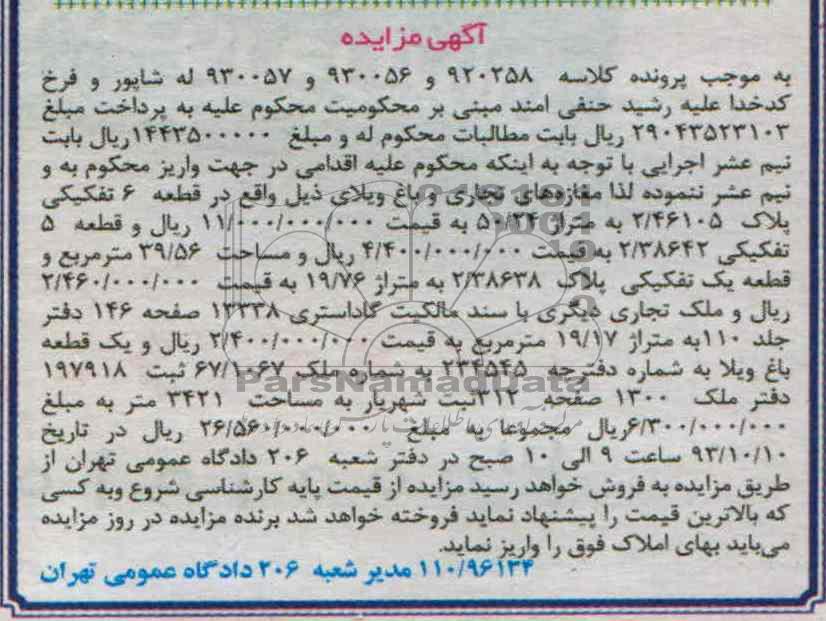 آگهی مزایده
به موجب پرونده کلاسه ۹۲۰۲۵۸ و ۹۳۰۰۵۶ و ۹۳۰۰۵۷ له شاپور و فرخ
کدخدا علیه رشید حنفی امند مبنی بر محکومیت محکوم علیه به پرداخت مبلغ
۲۹۰۴۳۵۲۳۱۰۳ ریال بابت مطالبات محکوم له و مبلغ ۱۴۴۳۵۰۰۰۰۰ ریال بابت
نیم عشر اجرایی با توجه به اینکه محکوم علیه اقدامی در جهت واریز محکوم به و
نیم عشر ننموده لذا مغازه‌های تجاری و باغ ویلای ذیل واقع در قطعه ۶ تفکیکی
پلاک ۲/۴۶۱۰۵ به متراژ ۵۰/۳۴ به قیمت ۱۱/۰۰۰/۰۰۰/۰۰۰ ریال و قطعه ۵
تفکیکی ۲/۳۸۶۴۲ به قیمت ۴/۴۰۰/۰۰۰/۰۰۰ ریال و مساحت ۳۹/۵۶ مترمربع و
قطعه یک تفکیکی پلاک ۲/۳۸۶۳۸ به متراژ ۱۹/۷۶ به قیمت ۲/۴۶۰/۰۰۰/۰۰۰
ریال و ملک تجاری دیگری با سند مالکیت کاداستری ۱۳۳۳۸ صفحه ۱۴۶ دفتر
جلد ۱۱۰ به متراژ ۱۹/۱۷ مترمربع به قیمت ۲/۴۰۰/۰۰۰/۰۰۰ ریال و یک قطعه
باغ ویلا به شماره دفترچه ۲۳۴۵۴۵ به شماره ملک ۶۷/۱۰۶۷ ثبت ۱۹۷۹۱۸
دفتر ملک ۱۳۰۰ صفحه ۳۱۲ ثبت شهریار به مساحت ۳۴۲۱ متر به مبلغ
۶/۳۰۰/۰۰۰/۰۰۰ ریال مجموعا به مبلغ ۲۶/۵۶۰/۰۰۰/۰۰۰ ریال در تاریخ
۹۳/۱۰/۱۰ ساعت ۹ الی ۱۰ صبح در دفتر شعبه ۲۰۶ دادگاه عمومی تهران از
طریق مزایده به فروش خواهد رسید مزایده از قیمت پایه کارشناسی شروع وبه کسی
که بالاترین قیمت را پیشنهاد نماید فروخته خواهد شد برنده مزایده در روز مزایده
می‌باید بهای املاک فوق را واریز نماید.
۱۱۰/۹۶۱۳۴ مدیر شعبه ۲۰۶ دادگاه عمومی تهران
ParsNamadData